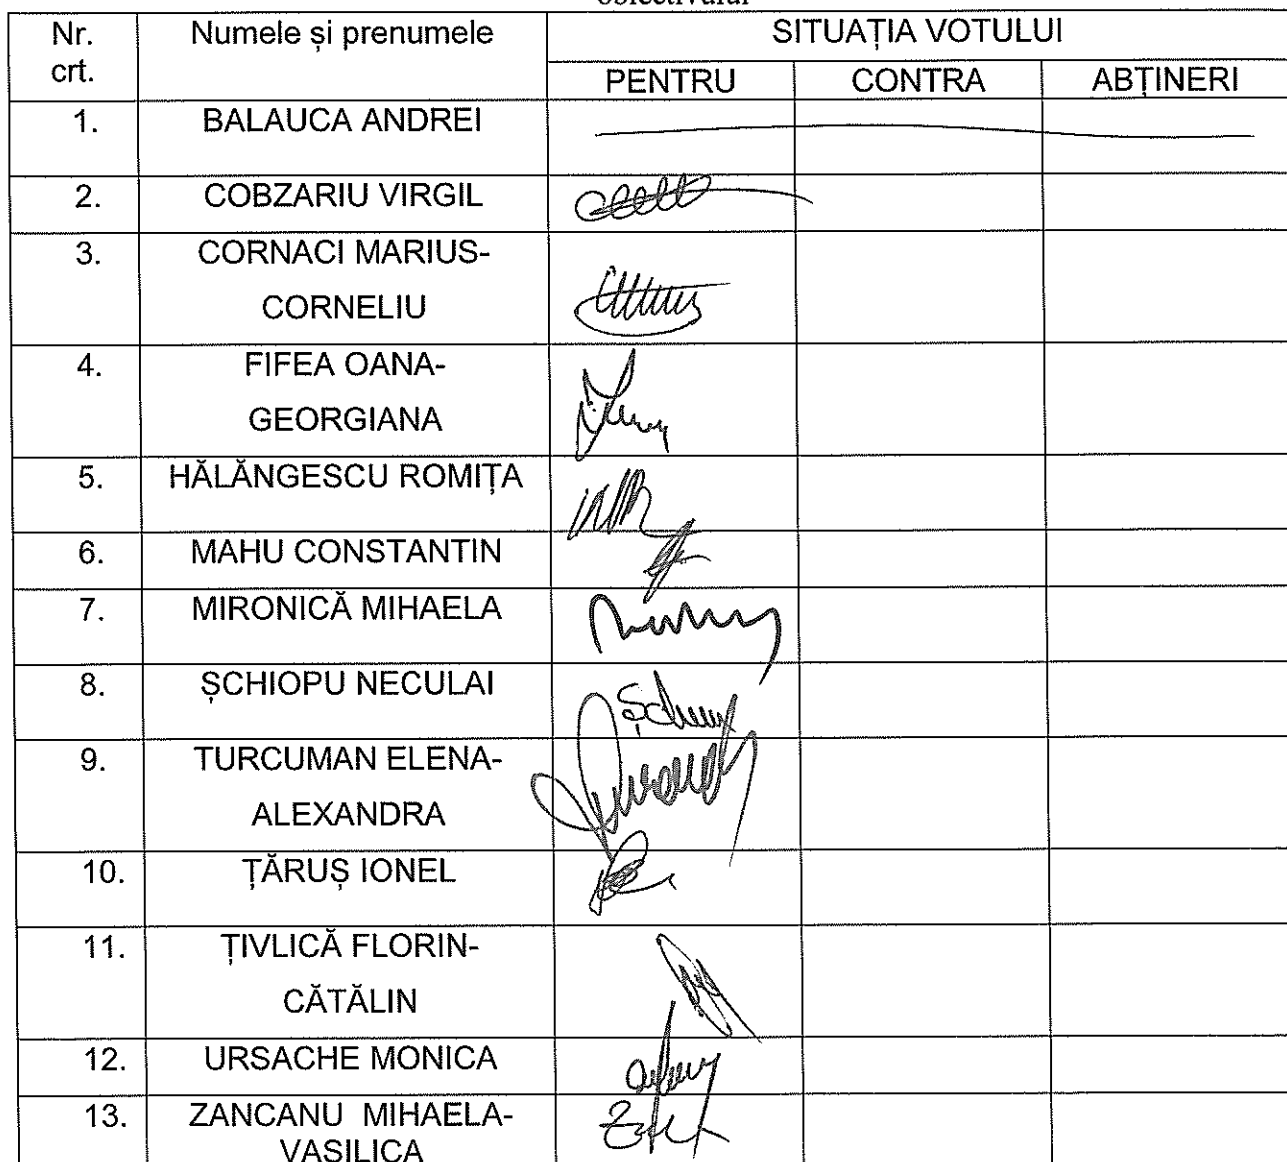 Nr. crt. Numele și prenumele SITUAȚIA VOTULUI
PENTRU CONTRA ABȚINERI
1. BALAUCA ANDREI
2. COBZARIU VIRGIL
3. CORNACI MARIUS-
CORNELIU
4. FIFEA OANA-
GEORGIANA
5. HĂLĂNGESCU ROMIȚA
6. MAHU CONSTANTIN
7. MIRONICĂ MIHAELA
8. ȘCHIOPU NECULAI
9. TURCUMAN ELENA-
ALEXANDRA
10. ȚĂRUȘ IONEL
11. ȚIVLICĂ FLORIN-
CĂTĂLIN
12. URSACHE MONICA
13. ZANCANU MIHAELA-
VASILICA